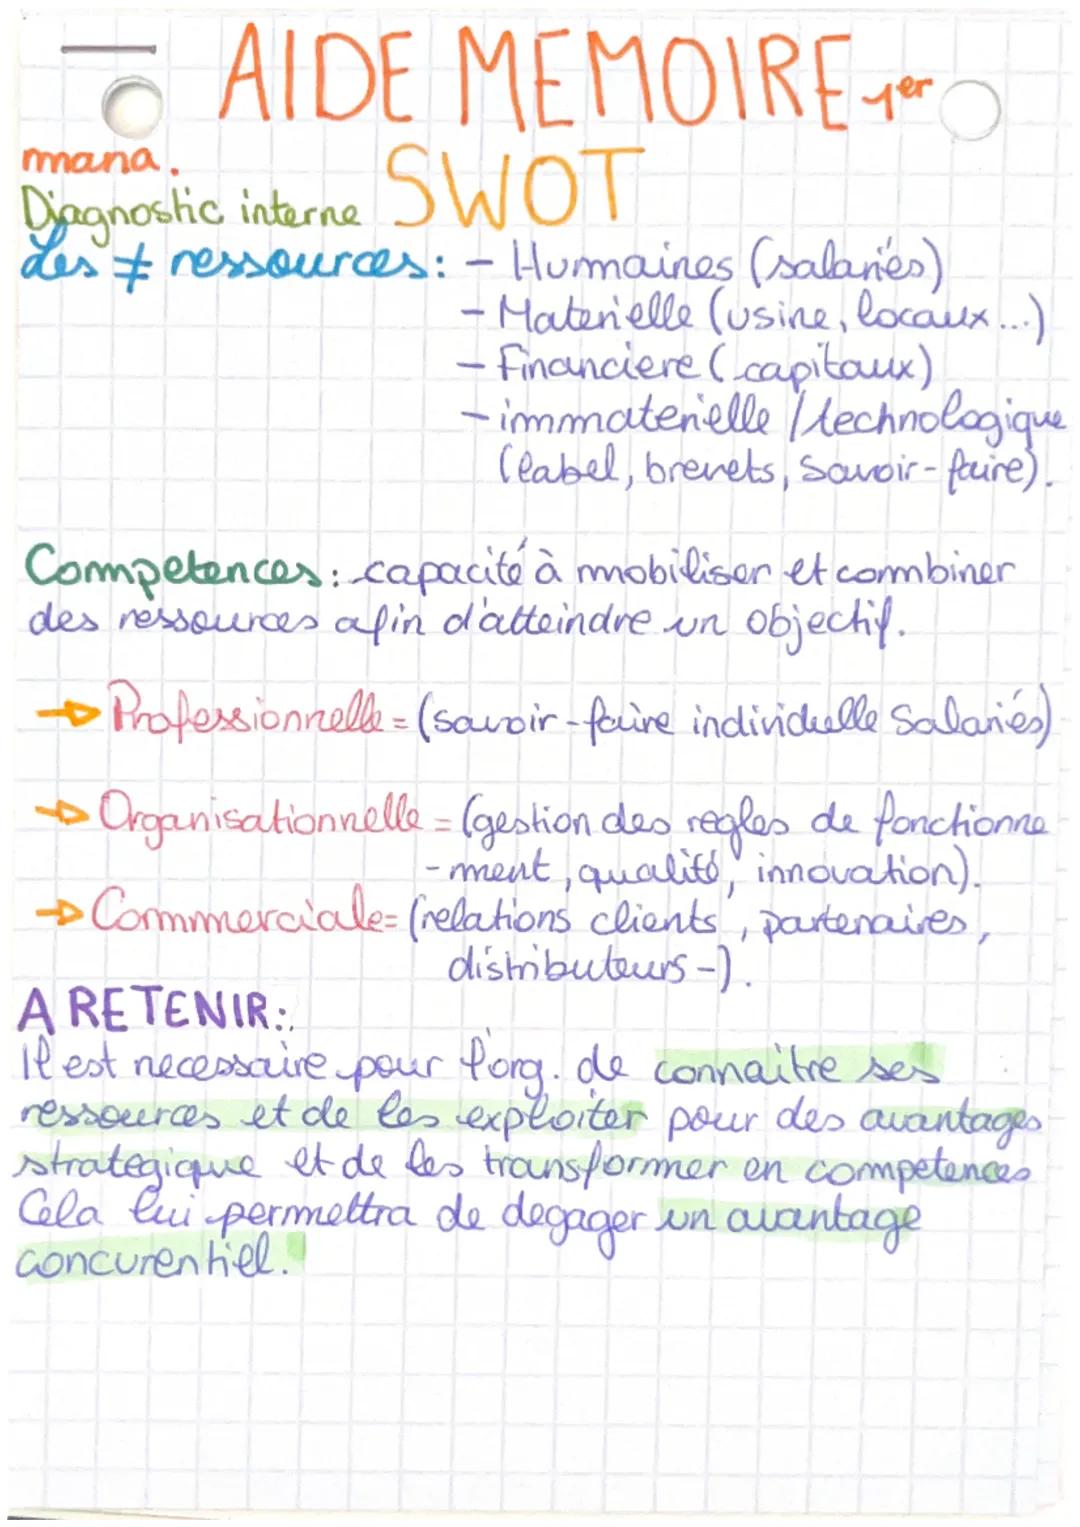 AIDE MEMOIRE 1er
mana. SWOT
Diagnostic interne
Les ≠ ressources: - Humaines (salariés)
- Materielle (usine, locaux...)
- Financiere (capitaux)
- immaterielle / technologique
(label, brevets, savoir-faire).
Competences: capacité à mobiliser et combiner
des ressources afin d'atteindre un objectif.
→ Professionnelle = (savoir-faire individuelle salariés)
→ Organisationnelle = (gestion des regles de fonctionne
-ment, qualité, innovation).
→ Commerciale = (relations clients, partenaires,
distributeurs -).
A RETENIR:
Il est necessaire pour l'org. de connaitre ses
ressources et de les exploiter pour des avantages
strategique et de les transformer en competences
Cela lui permettra de degager un avantage
concurentiel.